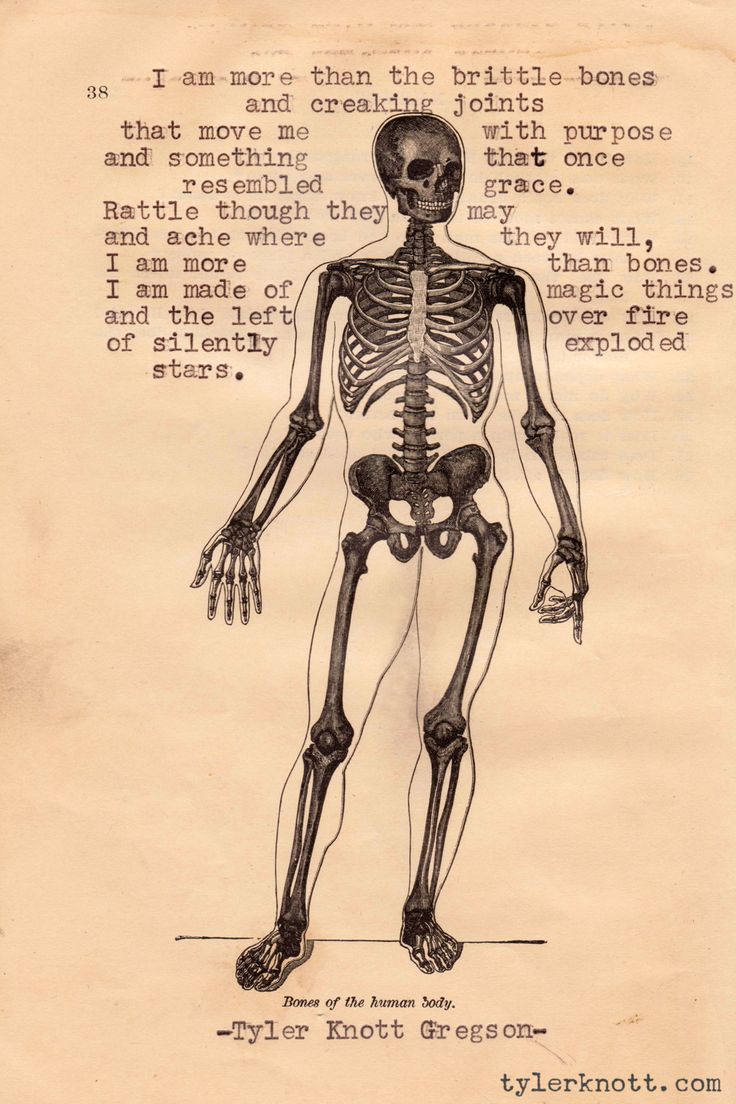 38
I am more than the brittle bones
and creaking joints
that move me with purpose
and something that once
resembled grace.
Rattle though they may
and ache where they will,
I am more than bones.
I am made of magic things
and the left over fire
of silently exploded
stars.
Bones of the human body.
-Tyler Knott Gregson-
tylerknott.com